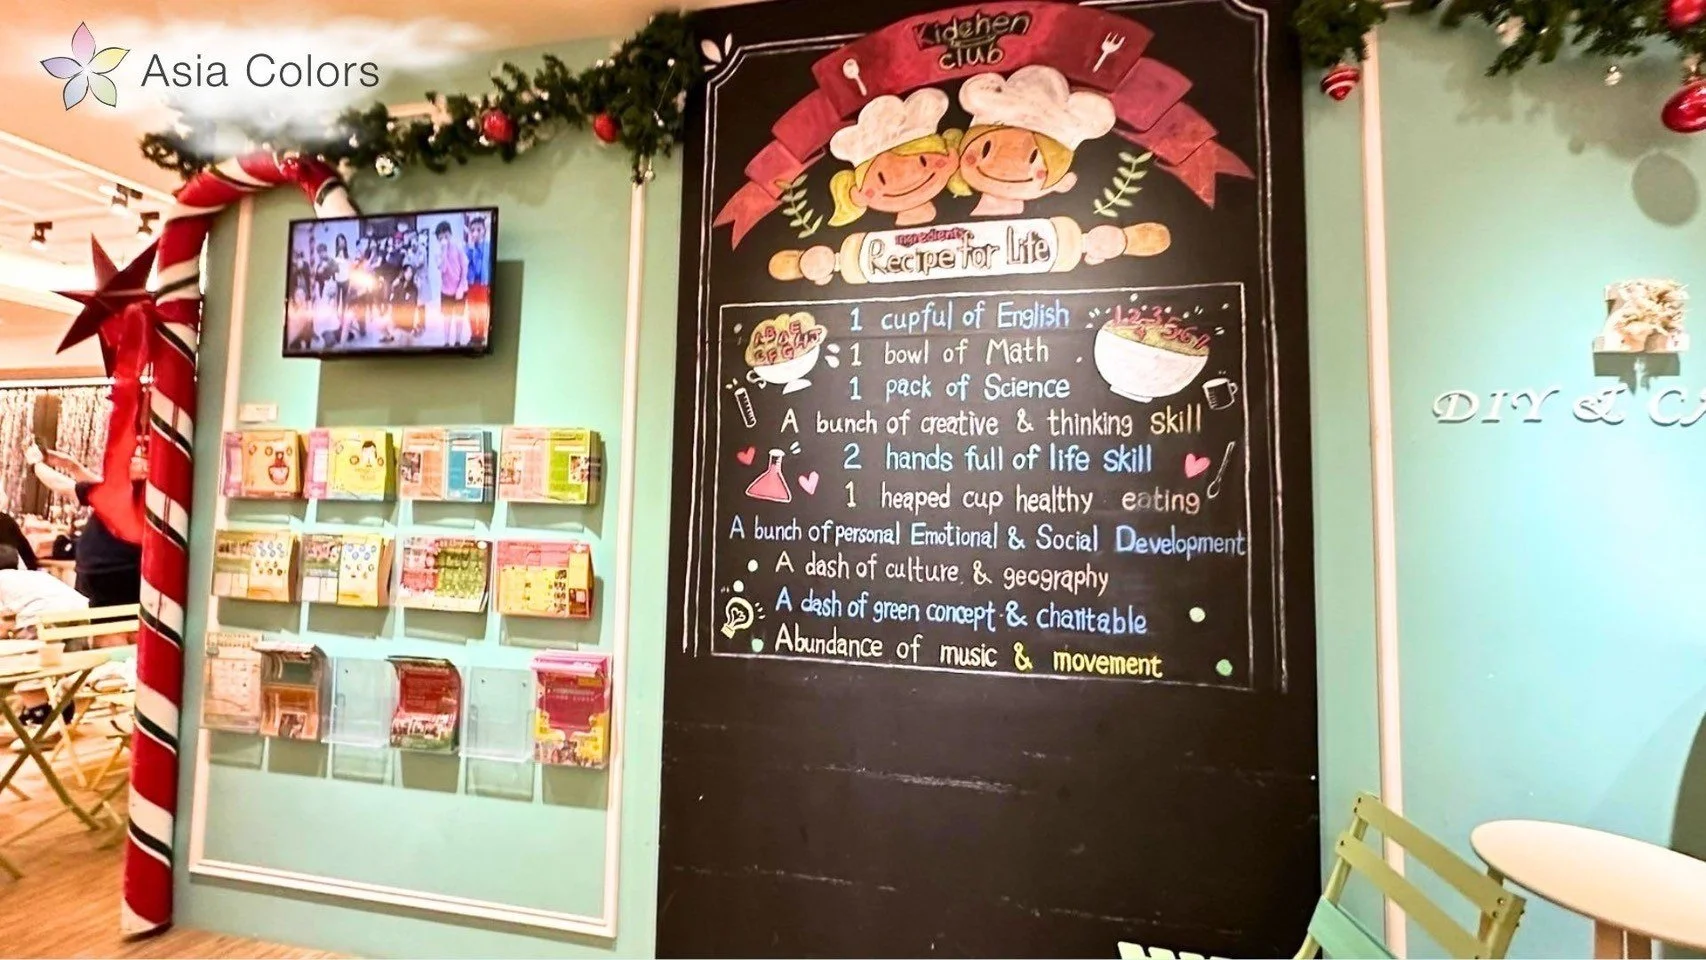 Asia Colors
Kidchen
club
Ingredients
Recipe for Life
1 cupful of English
1 bowl of Math
1 pack of Science
A bunch of creative & thinking skill
2 hands full of life skill
1 heaped cup healthy eating
A bunch of personal Emotional & Social Development
A dash of culture & geography
A dash of green concept & charitable
Abundance of music & movement
DIY &